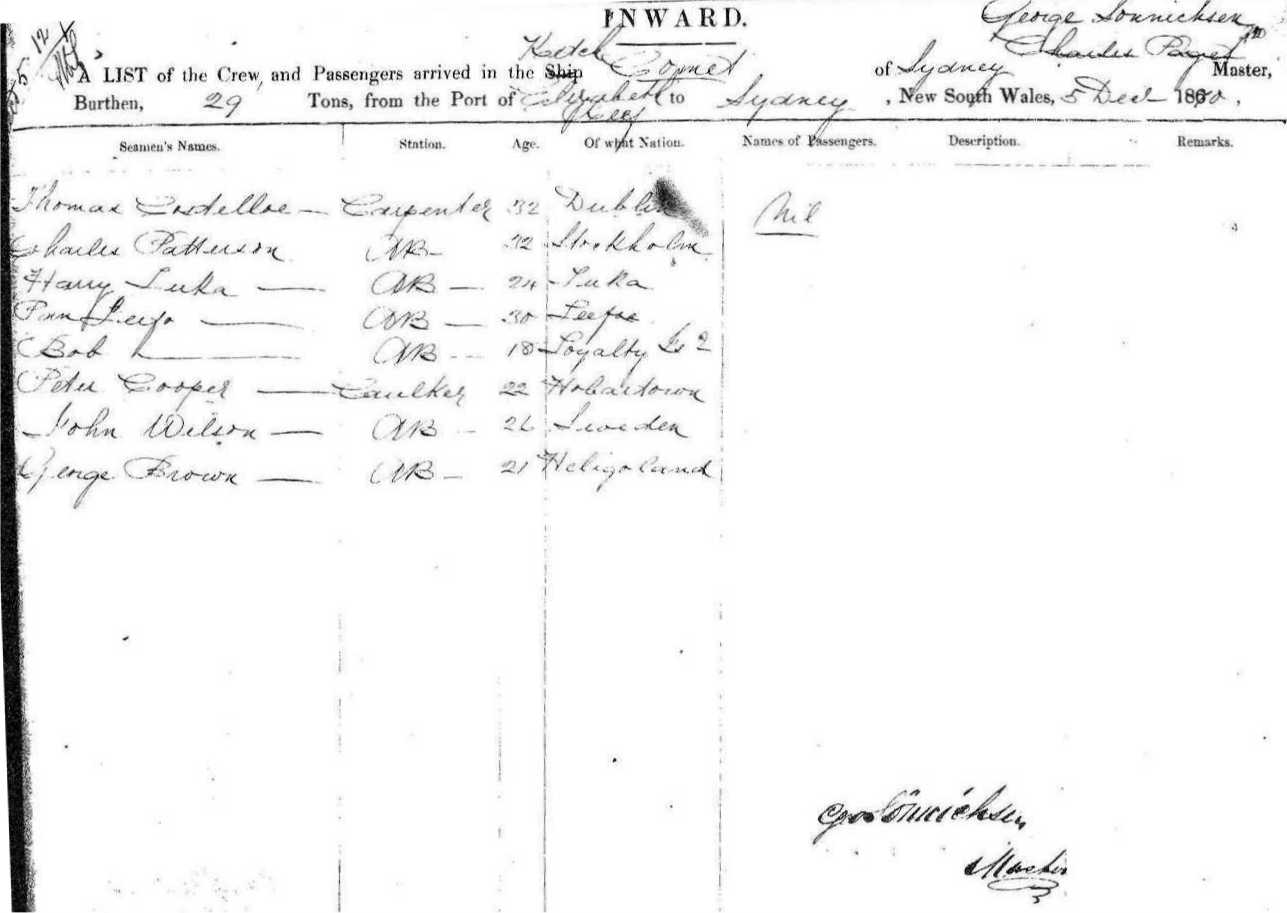 INWARD.
George Sonnichsen
Charles Paget
5.12
Ketch
A LIST of the Crew, and Passengers arrived in the Ship Comet of Sydney Master,
Burthen, 29 Tons, from the Port of Elizabeth Reef to Sydney, New South Wales, 5 Decr 1880,
Seamen's Names. Station. Age. Of what Nation. Names of Passengers. Description. Remarks.
Thomas Costelloe — Carpenter 32 Dublin Nil
Charles Patterson AB — 32 Stockholm
Harry Luka — AB — 24 Luka
— AB — 30
Bob — AB — 18 Loyalty Is
Peter Cooper — Caulker 22 Hobartown
John Wilson — AB — 26 Sweden
George Brown — AB — 21 Heligoland
Geo Sönnichsen
Master